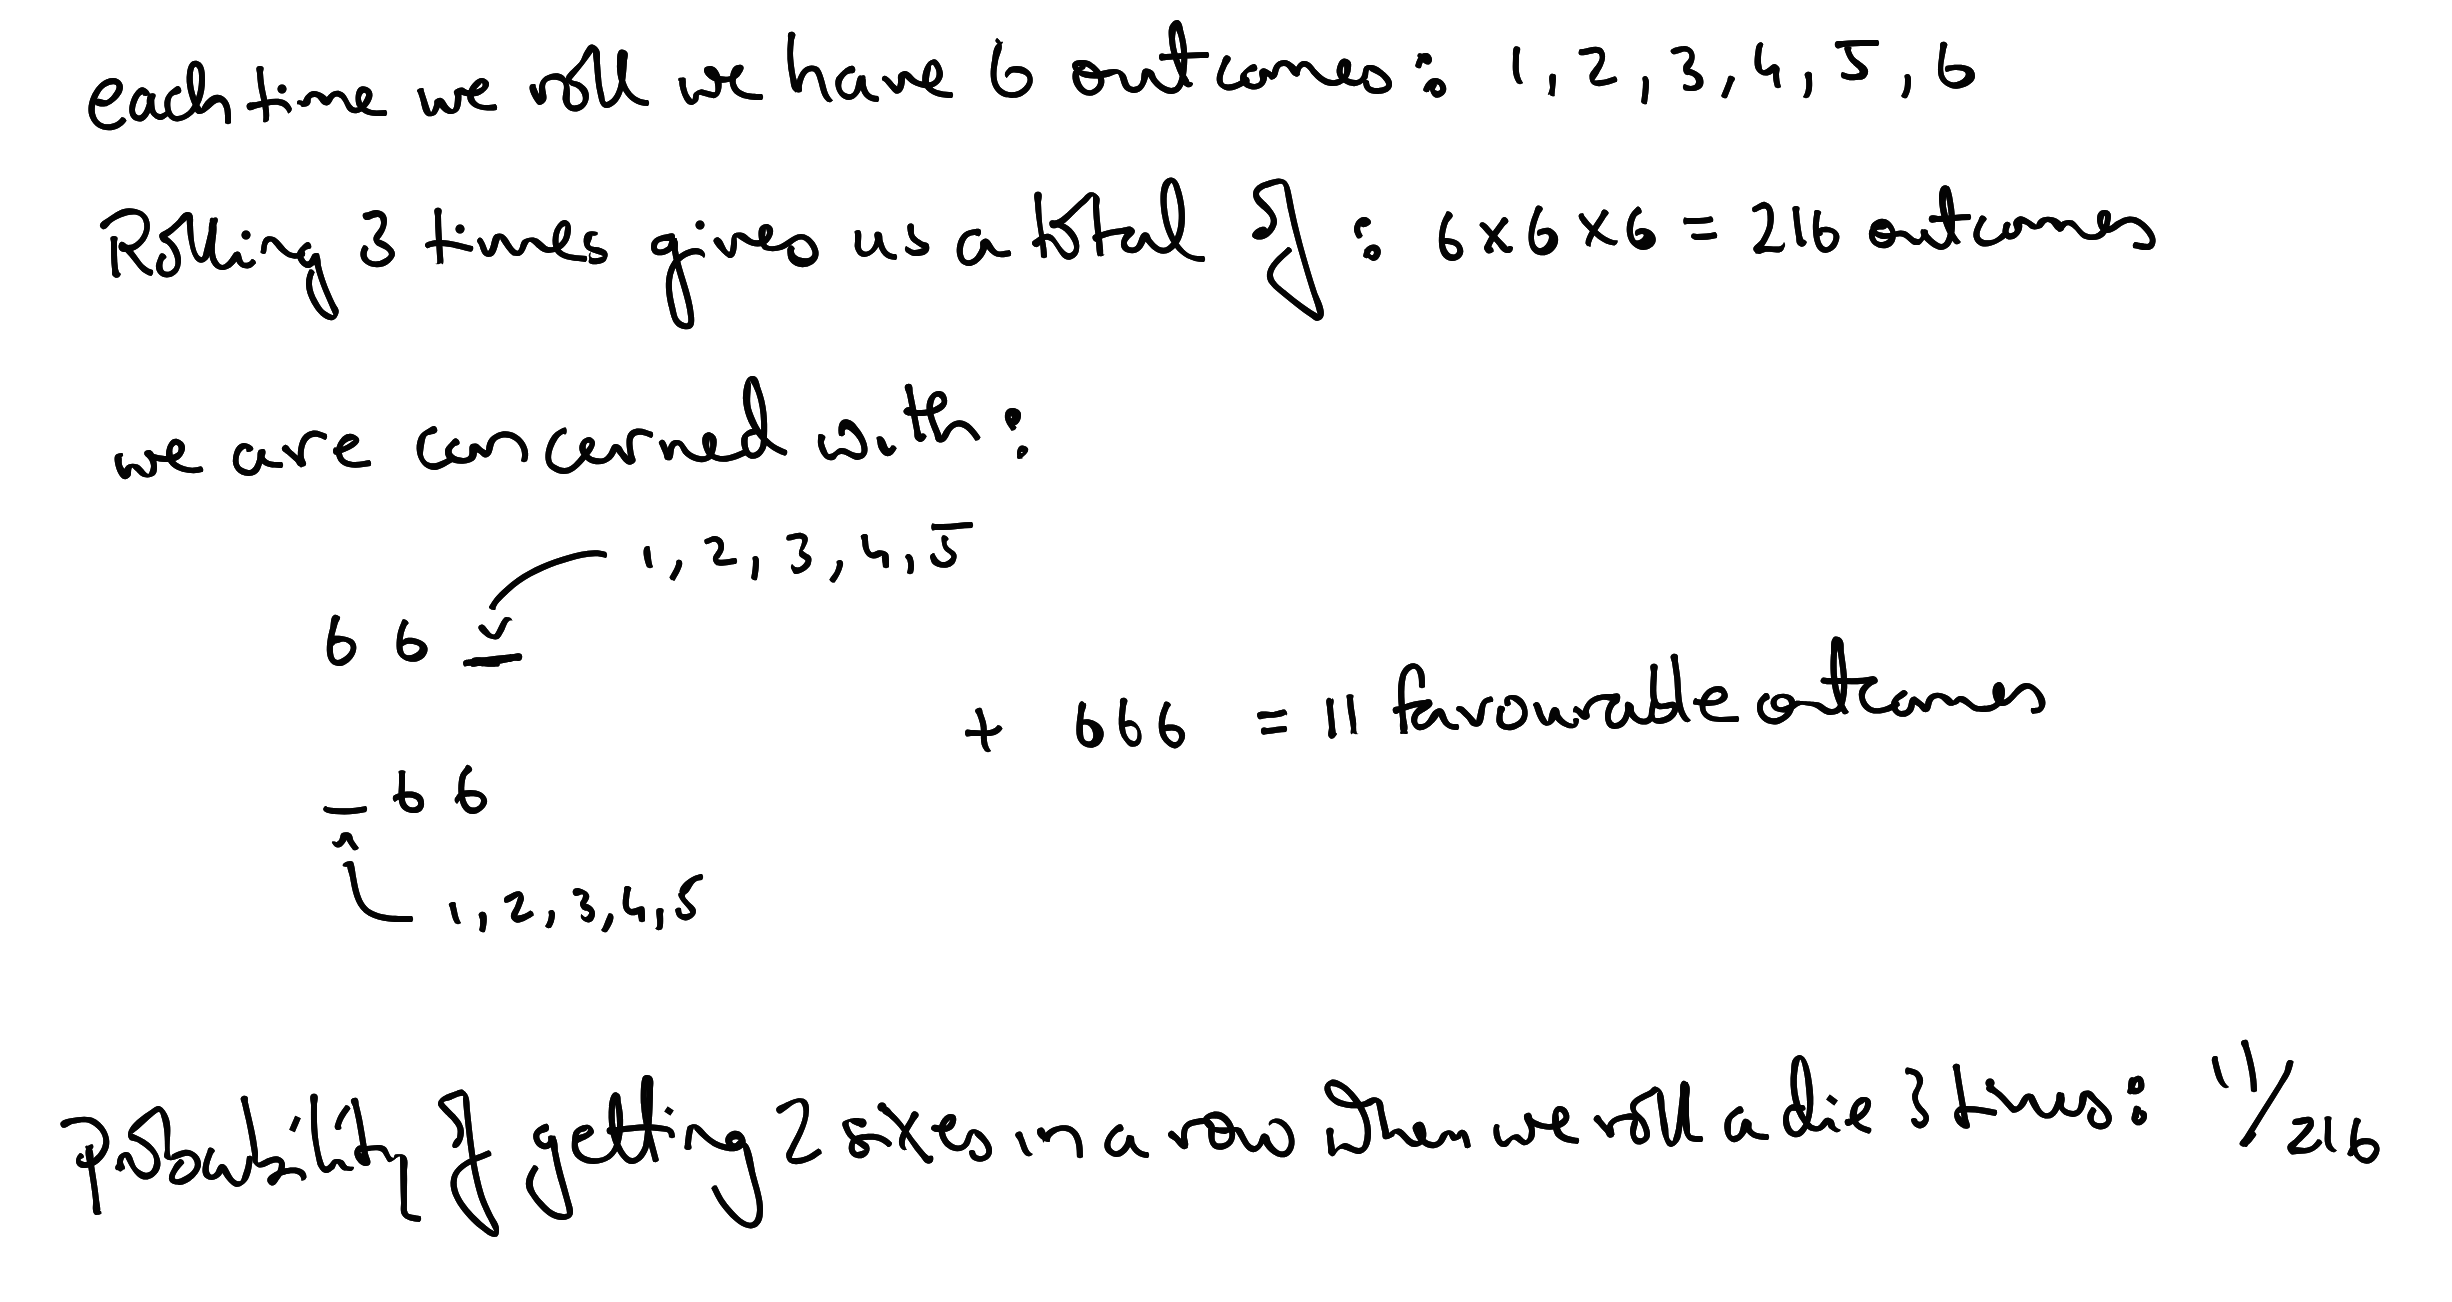 each time we roll we have 6 outcomes: 1, 2, 3, 4, 5, 6
Rolling 3 times gives us a total of: 6×6×6 = 216 outcomes
we are concerned with:
1, 2, 3, 4, 5
6 6 _
+ 666 = 11 favourable outcomes
_ 6 6
1, 2, 3, 4, 5
Probability of getting 2 sixes in a row when we roll a die 3 times: 11/216